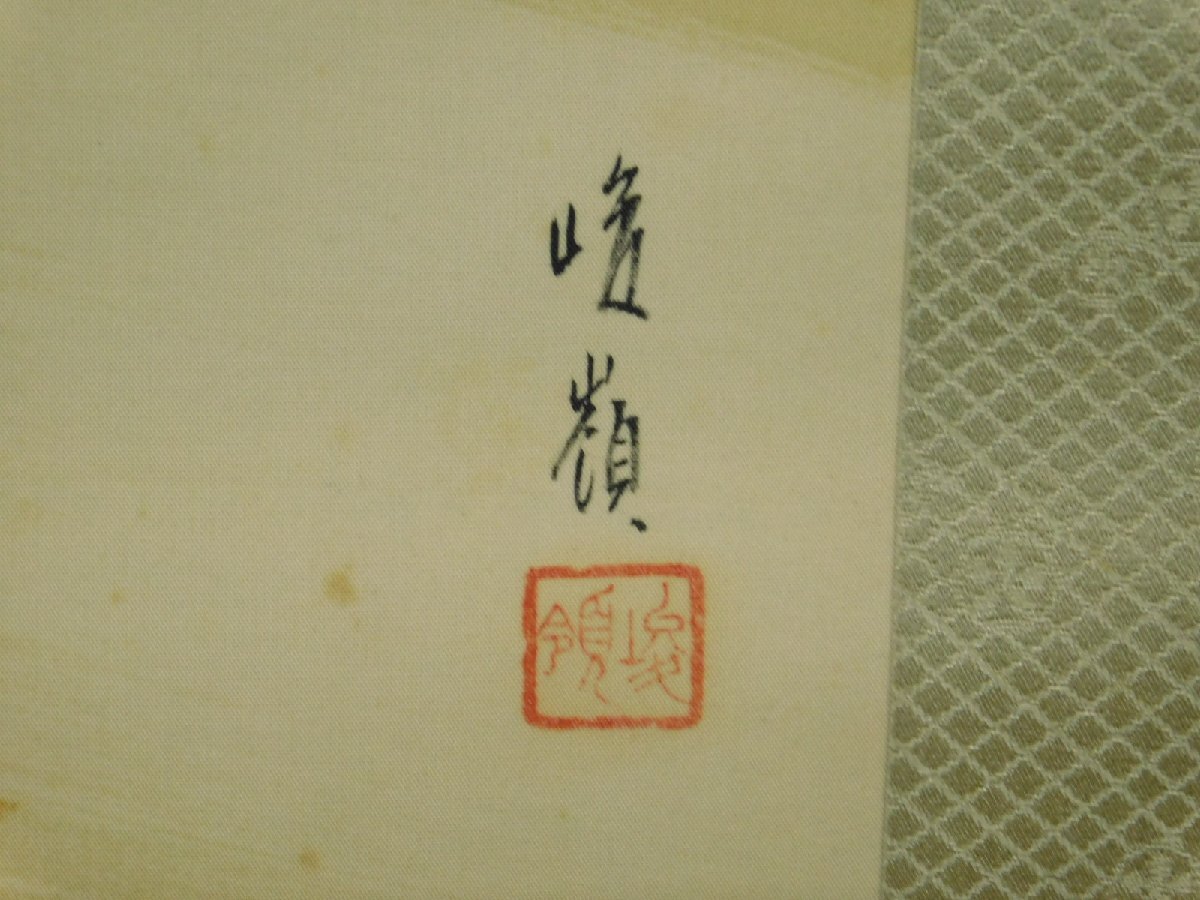 峻嶺
峻領